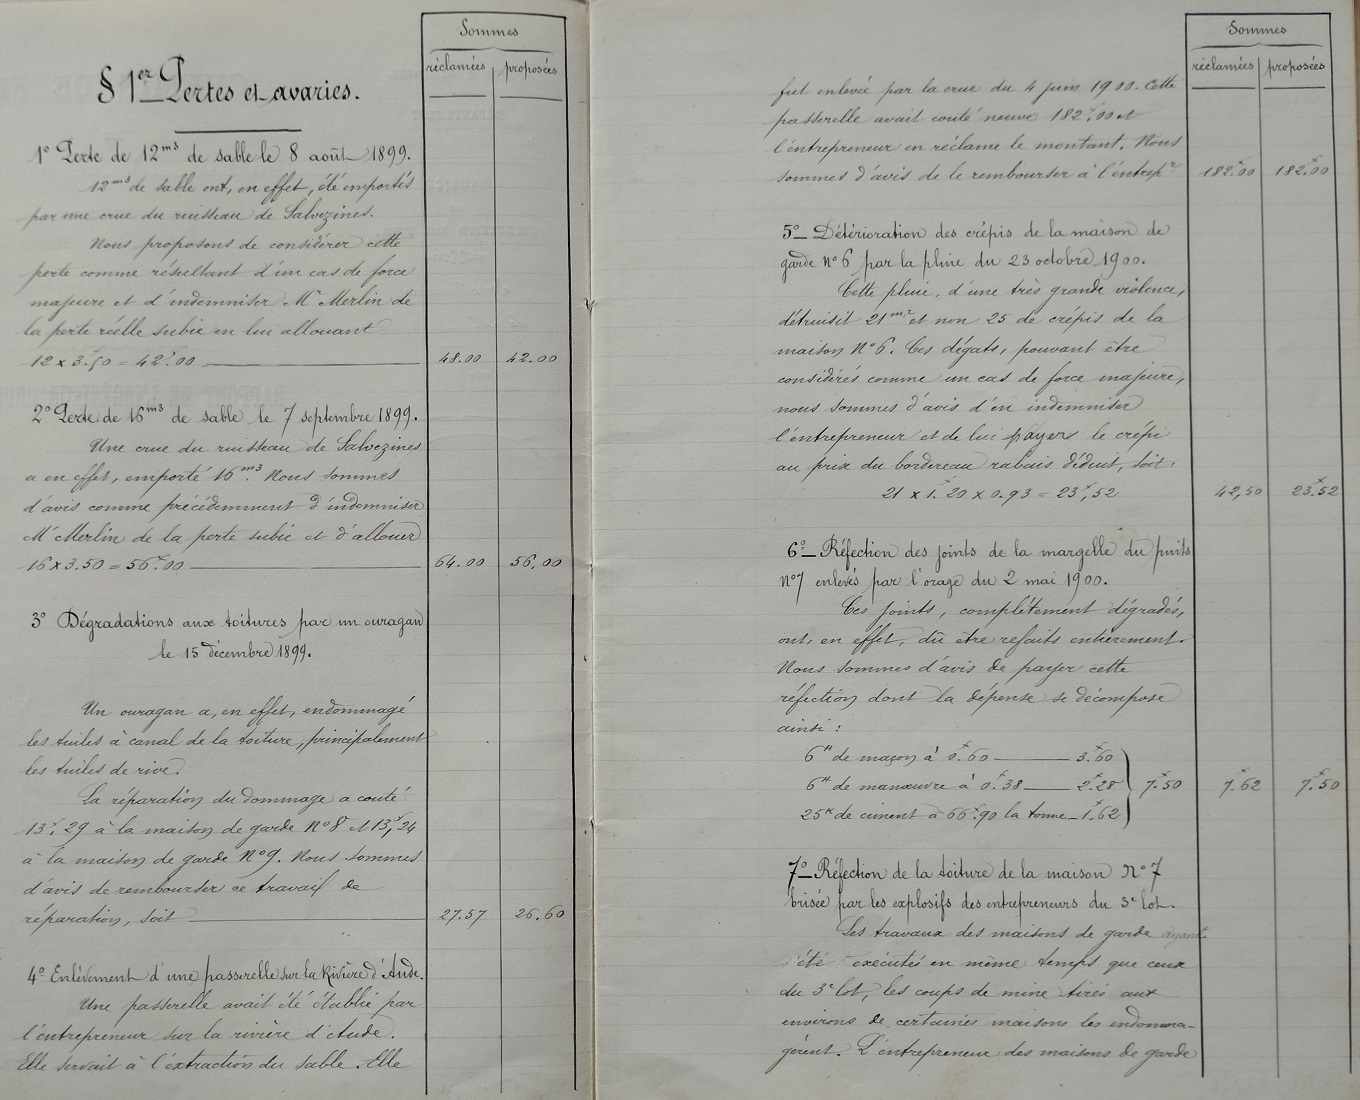 Sommes
réclamées proposées
§ 1er Pertes et avaries.
1° Perte de 12m3 de sable le 8 août 1899.
12m3 de sable ont, en effet, été emportés
par une crue du ruisseau de Salvezines.
Nous proposons de considérer cette
perte comme résultant d'un cas de force
majeure et d'indemniser Mr Merlin de
la perte réelle subie en lui allouant
12 x 3f.50 = 42f.00 48.00 42.00
2° Perte de 16m3 de sable le 7 septembre 1899.
Une crue du ruisseau de Salvezines
a en effet, emporté 16m3. Nous sommes
d'avis comme précédemment d'indemniser
Mr Merlin de la perte subie et d'allouer
16 x 3.50 = 56f.00 64.00 56.00
3° Dégradations aux toitures par un ouragan
le 15 décembre 1899.
Un ouragan a, en effet, endommagé
les tuiles à canal de la toiture, principalement
les tuiles de rive.
La réparation du dommage a couté
13f.29 à la maison de garde N°8 et 13f,24
à la maison de garde N°9. Nous sommes
d'avis de rembourser ce travail de
réparation, soit 27.57 26.60
4° Enlèvement d'une passerelle sur la Rivière d'Aude.
Une passerelle avait été établie par
l'entrepreneur sur la rivière d'Aude.
Elle servait à l'extraction du sable. Elle
Sommes
réclamées proposées
fut enlevée par la crue du 4 juin 1900. Cette
passerelle avait couté neuve 182f,00 et
l'entrepreneur en réclame le montant. Nous
sommes d'avis de le rembourser à l'entrepr 182f.00 182f.00
5°_ Détérioration des crépis de la maison de
garde N°6 par la pluie du 23 octobre 1900.
Cette pluie, d'une très grande violence,
détruisit 21m2 et non 25 de crépis de la
maison N°6. Ces dégats, pouvant être
considérés comme un cas de force majeure,
nous sommes d'avis d'en indemniser
l'entrepreneur et de lui payer le crépi
au prix du bordereau rabais déduit, soit:
21 x 1f.20 x 0.93 = 23f,52 42,50 23f.52
6°_ Réfection des joints de la margelle du puits
N°7 enlevés par l'orage du 2 mai 1900.
Ces joints, complètement dégradés,
ont, en effet, dû être refaits entièrement.
Nous sommes d'avis de payer cette
réfection dont la dépense se décompose
ainsi:
6H de maçon à 0f.60 3f.60
6H de manœuvre à 0f.38 2f.28 7f.50 7f.62 7f.50
25K de ciment à 66f.90 la tonne 1f.62
7°_ Réfection de la toiture de la maison N°7
brisée par les explosifs des entrepreneurs du 3e lot.
Les travaux des maisons de garde ayant
été exécutés en même temps que ceux
du 3e lot, les coups de mine tirés aux
environs de certaines maisons les endomma-
gèrent. L'entrepreneur des maisons de garde